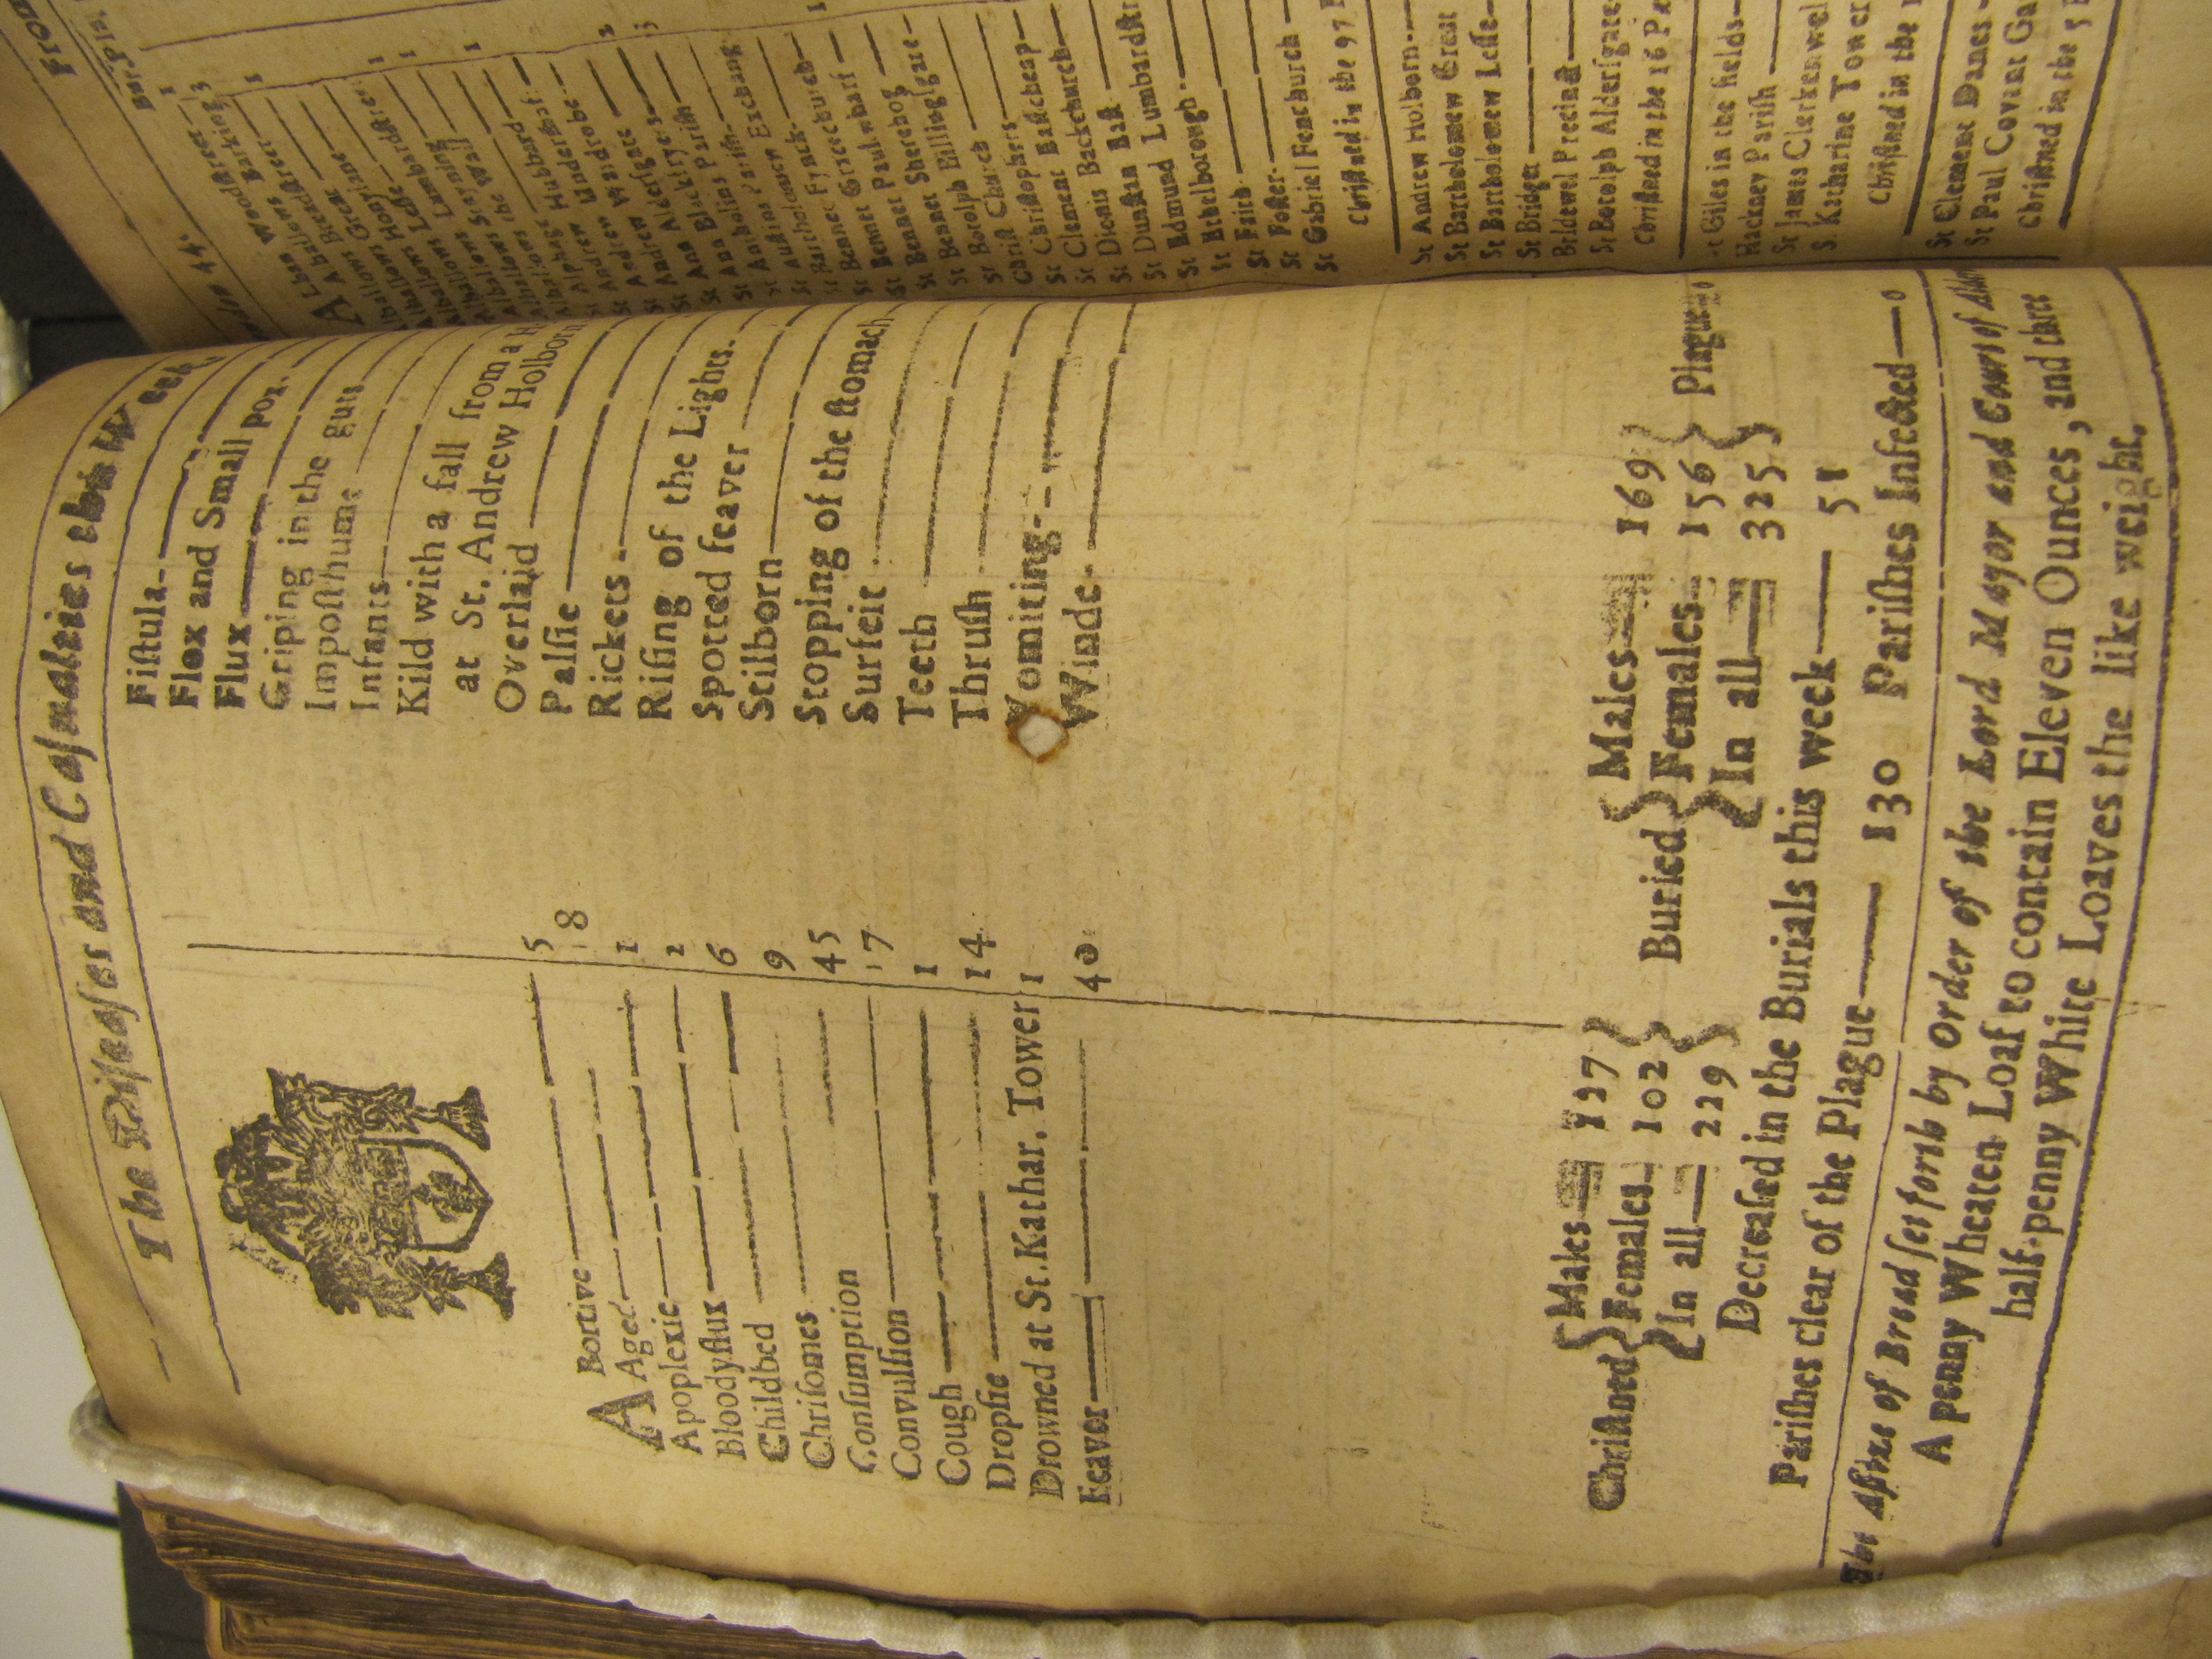 The Diseases and Casualties this Week
ABortive 5
Aged 18
Apoplexie 1
Bloodyflux 2
Childbed 6
Chrisomes 9
Consumption 45
Convulsion 17
Cough 1
Dropsie 14
Drowned at St.Kathar. Tower 1
Feaver 40
Fistula
Flox and Small pox
Flux
Griping in the guts
Imposthume
Infants
Kild with a fall from a
at St. Andrew Holborn
Overlaid
Palsie
Rickets
Rising of the Lights
Spotted feaver
Stilborn
Stopping of the stomach
Surfeit
Teeth
Thrush
Vomiting
Winde
Christned
Males 127
Females 102
In all 229
Buried
Males 169
Females 156
In all 325
Plague 0
Decreased in the Burials this week 51
Parishes clear of the Plague 130 Parishes Infected 0
The Assize of Bread set forth by Order of the Lord Mayor and Court of
A penny Wheaten Loaf to contain Eleven Ounces, and three
half-penny White Loaves the like weight.
From
44.
ALban Woodstreet 1
Alhallows Barking 3
Alhallows Breadstreet 1
Alhallows Great
Alhallows Honylane
Alhallows Lesse
Alhallows Lumbardstreet
Alhallows Staining
Alhallows the Wall
Alphage
Andrew Hubbard
St Andrew Undershaft
St Andrew Wardrobe
St Ann Aldersgate
St Ann Blackfryers
St Antholins Parish
St Austins Parish
St Bartholomew Exchang
St Bennet Fynck
St Bennet Gracechurch
St Bennet Paulswharf
St Bennet Sherehog
St Botolph Billingsgate
Christ Church
St Christophers
St Clement Eastcheap
St Dionis Backchurch
St Dunstan East
St Edmund Lumbardstr
St Ethelborough
St Faith
St Foster
St Gabriel Fenchurch
Christned in the 97 P
St Andrew Holborn
St Bartholomew Great
St Bartholomew Lesse
St Bridget
Bridewel Precinct
St Botolph Aldersgate
Christned in the 16 Pa
St Giles in the fields
Hackney Parish
St James Clerkenwel
S. Katharine Tower
Christned in the
St Clement Danes
St Paul Covent Ga
Christned in the 5